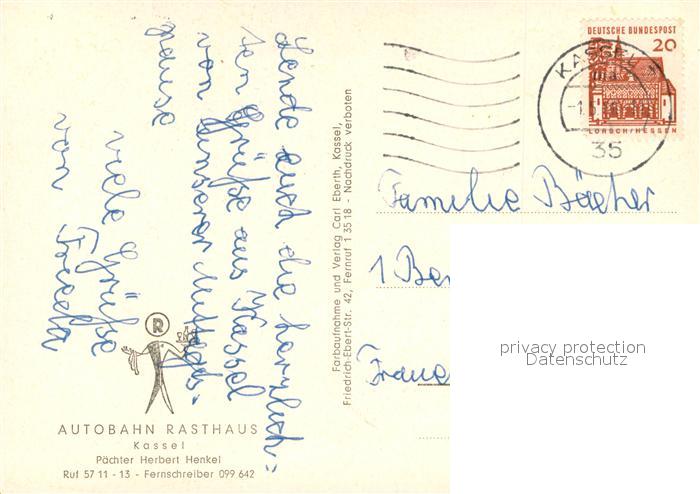 Sende euch die herzlich=
sten Grüße aus Kassel
von unserer Mittags=
pause
viele Grüße
von
AUTOBAHN RASTHAUS
Kassel
Pächter Herbert Henkel
Ruf 57 11 - 13 - Fernschreiber 099 642
R
Farbaufnahme und Verlag Carl Eberth, Kassel,
Friedrich-Ebert-Str. 42, Fernruf 1 35 18 - Nachdruck verboten
DEUTSCHE BUNDESPOST
20
LORSCH/HESSEN
KASSEL
35
Familie
1 Ber
privacy protection
Datenschutz